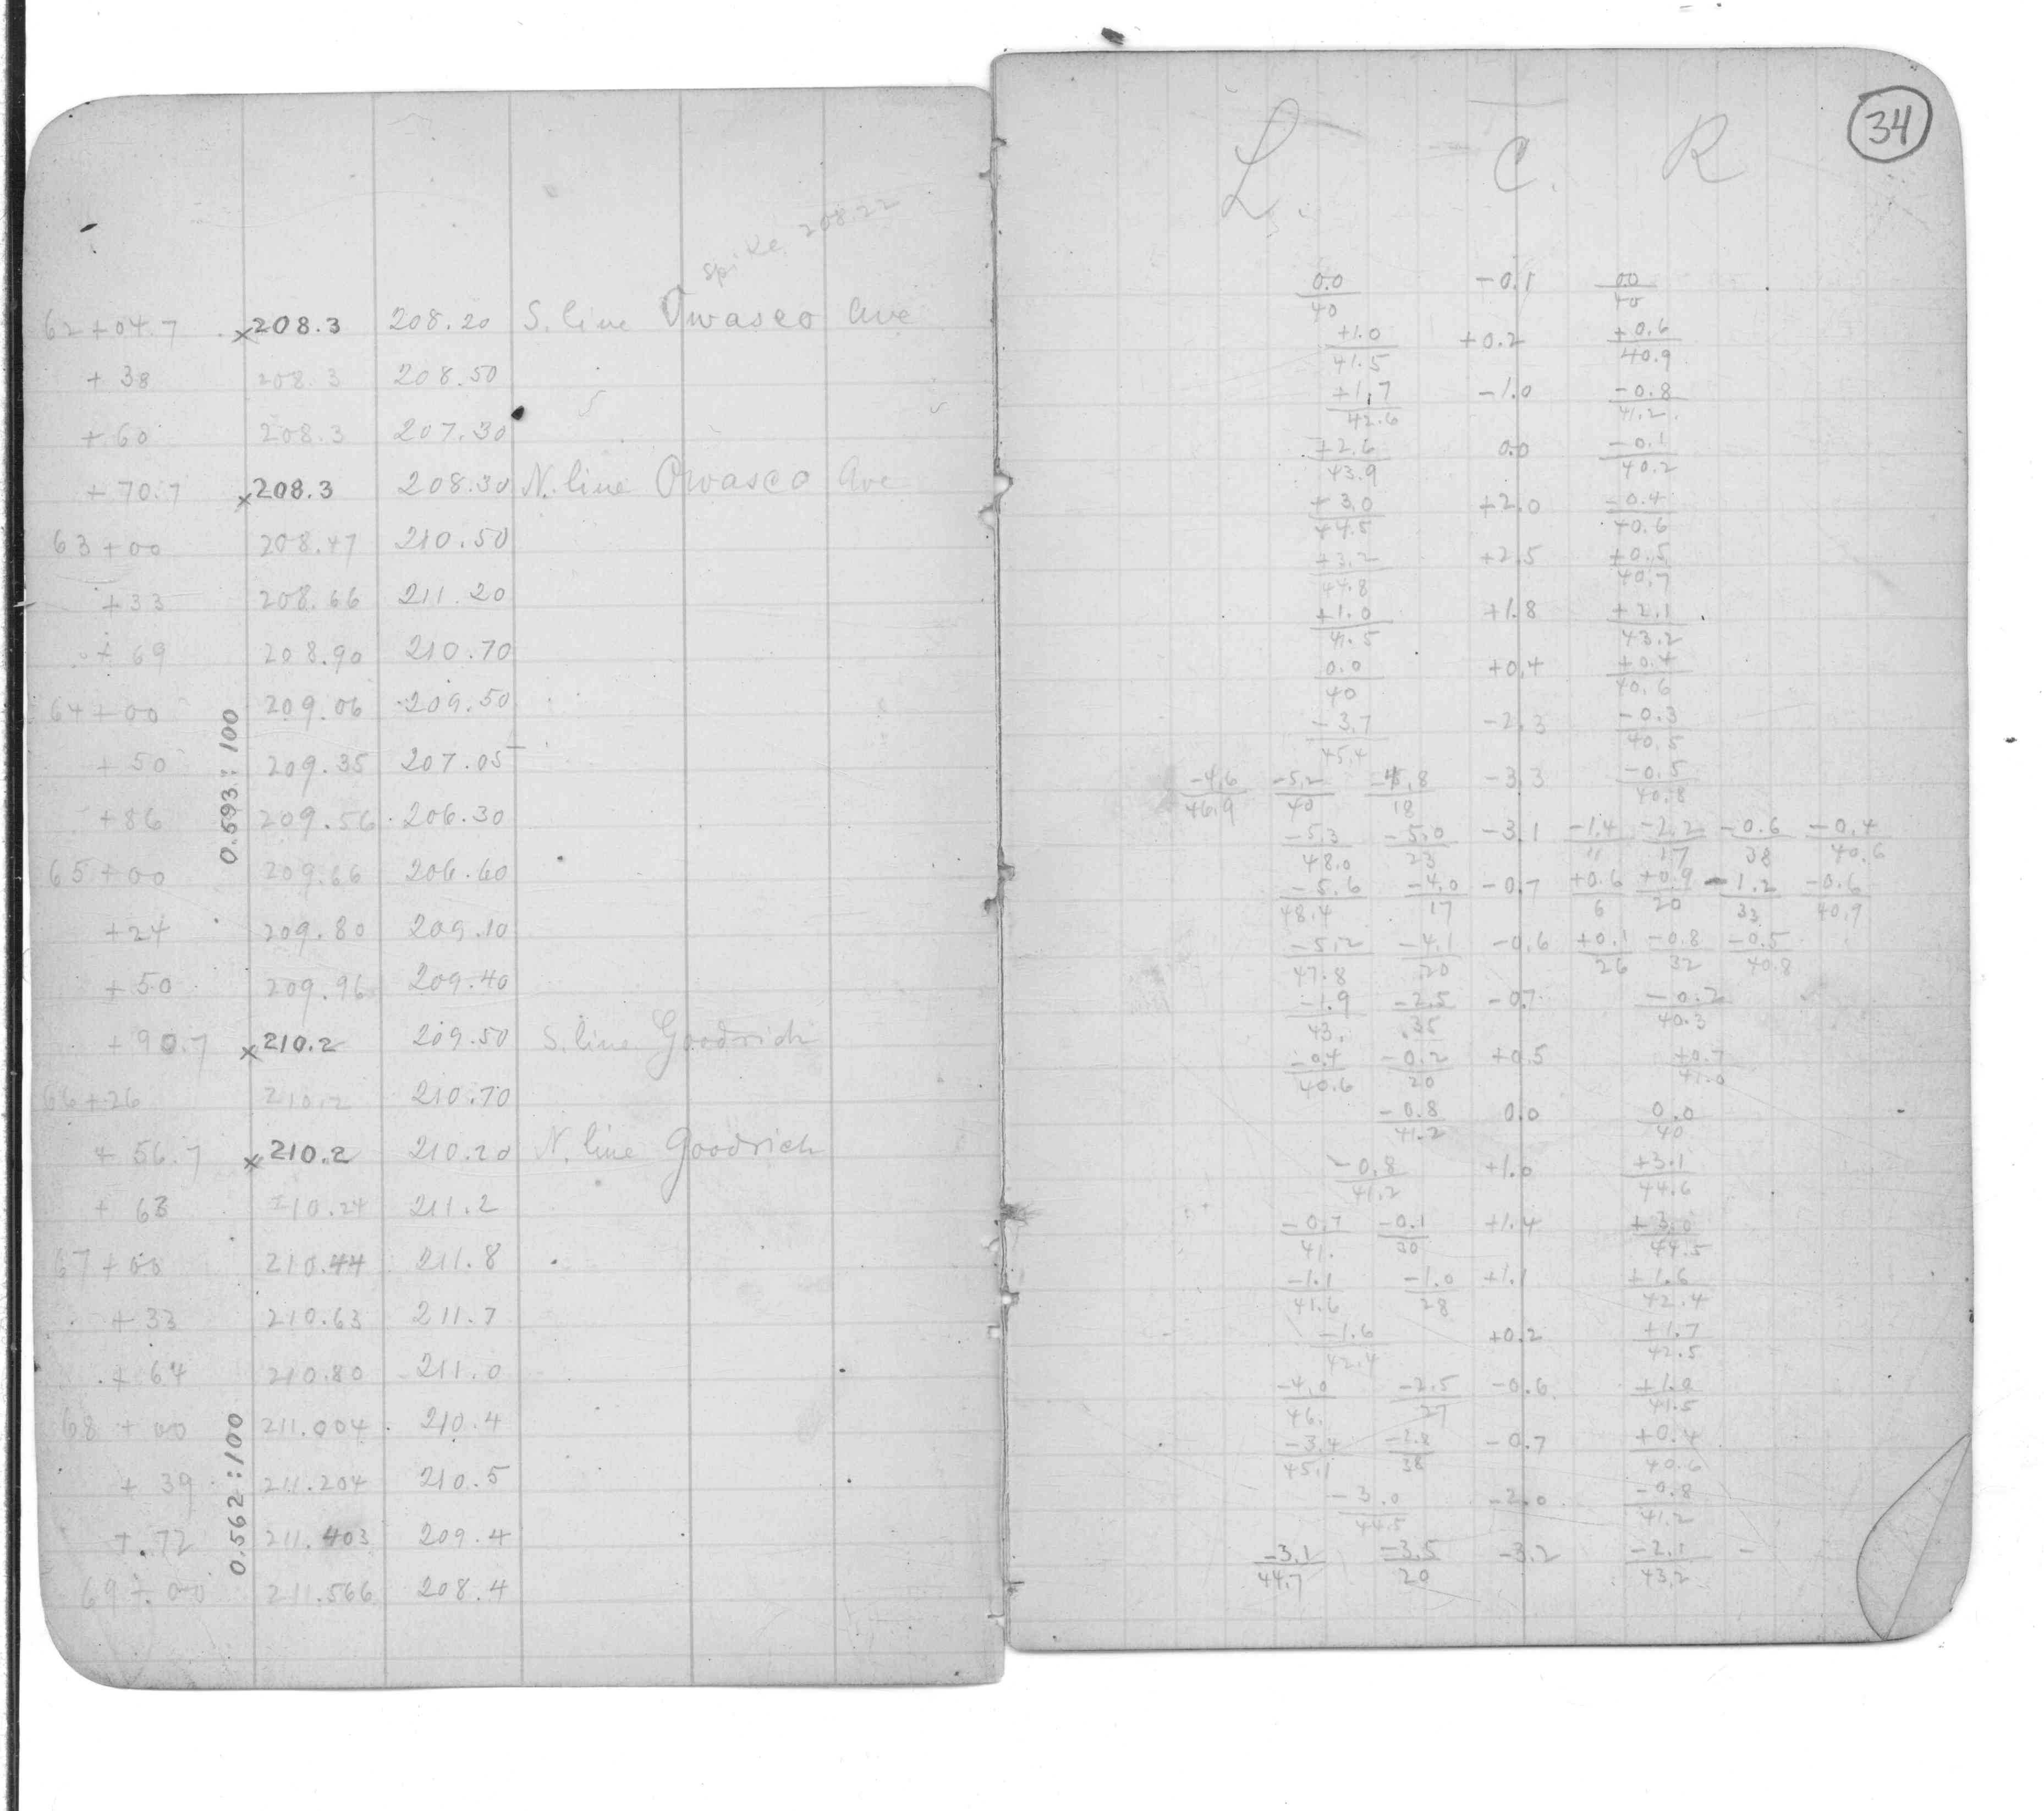 spike 208.22
62+04.7 x208.3 208.20 S. line Owasco Ave
+38 208.3 208.50
+60 208.3 207.30
+70.7 x208.3 208.30 N. line Owasco Ave
63+00 208.47 210.50
+33 208.66 211.20
+69 208.90 210.70
64+00 209.06 209.50
+50 209.35 207.05
+86 209.56 206.30
0.593:100
65+00 209.66 206.60
+24 209.80 209.10
+50 209.96 209.40
+90.7 x210.2 209.50 S. line Goodrich
66+26 210.2 210.70
+56.7 x210.2 210.20 N. line Goodrich
+63 210.24 211.2
67+00 210.44 211.8
+33 210.63 211.7
+64 210.80 211.0
68+00 211.004 210.4
+39 211.204 210.5
0.562:100
+72 211.403 209.4
69+00 211.566 208.4
34
L. C. R
0.0 -0.1 0.0
40 40
+1.0 +0.2 +0.6
41.5 40.9
+1.7 -1.0 -0.8
42.6 41.2
+2.6 0.0 -0.1
43.9 40.2
+3.0 +2.0 -0.4
44.5 40.6
+3.2 +2.5 +0.5
44.8 40.7
+1.0 +1.8 +2.1
41.5 43.2
0.0 +0.4 +0.4
40 40.6
-3.7 -2.3 -0.3
45.4 40.5
-4.6 -5.2 -4.8 -3.3 -0.5
46.9 40 18 40.8
-5.3 -5.0 -3.1 -1.4 -2.2 -0.6 -0.4
48.0 23 11 27 38 40.6
-5.6 -4.0 -0.7 +0.6 +0.9 -1.2 -0.6
48.4 17 6 20 33 40.9
-5.2 -4.1 -0.6 +0.1 -0.8 -0.5
47.8 20 26 32 40.8
-1.9 -2.5 -0.7 -0.2
43. 35 40.3
-0.4 -0.2 +0.5 +0.7
40.6 20 41.0
-0.8 0.0 0.0
41.2 40
-0.8 +1.0 +3.1
41.2 44.6
-0.7 -0.1 +1.4 +3.0
41. 30 44.5
-1.1 -1.0 +1.1 +1.6
41.6 28 42.4
-1.6 +0.2 +1.7
42.4 42.5
-4.0 -2.5 -0.6 +1.0
46. 27 41.5
-3.4 -2.8 -0.7 +0.4
45.1 38 40.6
-3.0 -2.0 -0.8
44.5 41.2
-3.1 -3.5 -3.2 -2.1 -
44.7 20 43.2